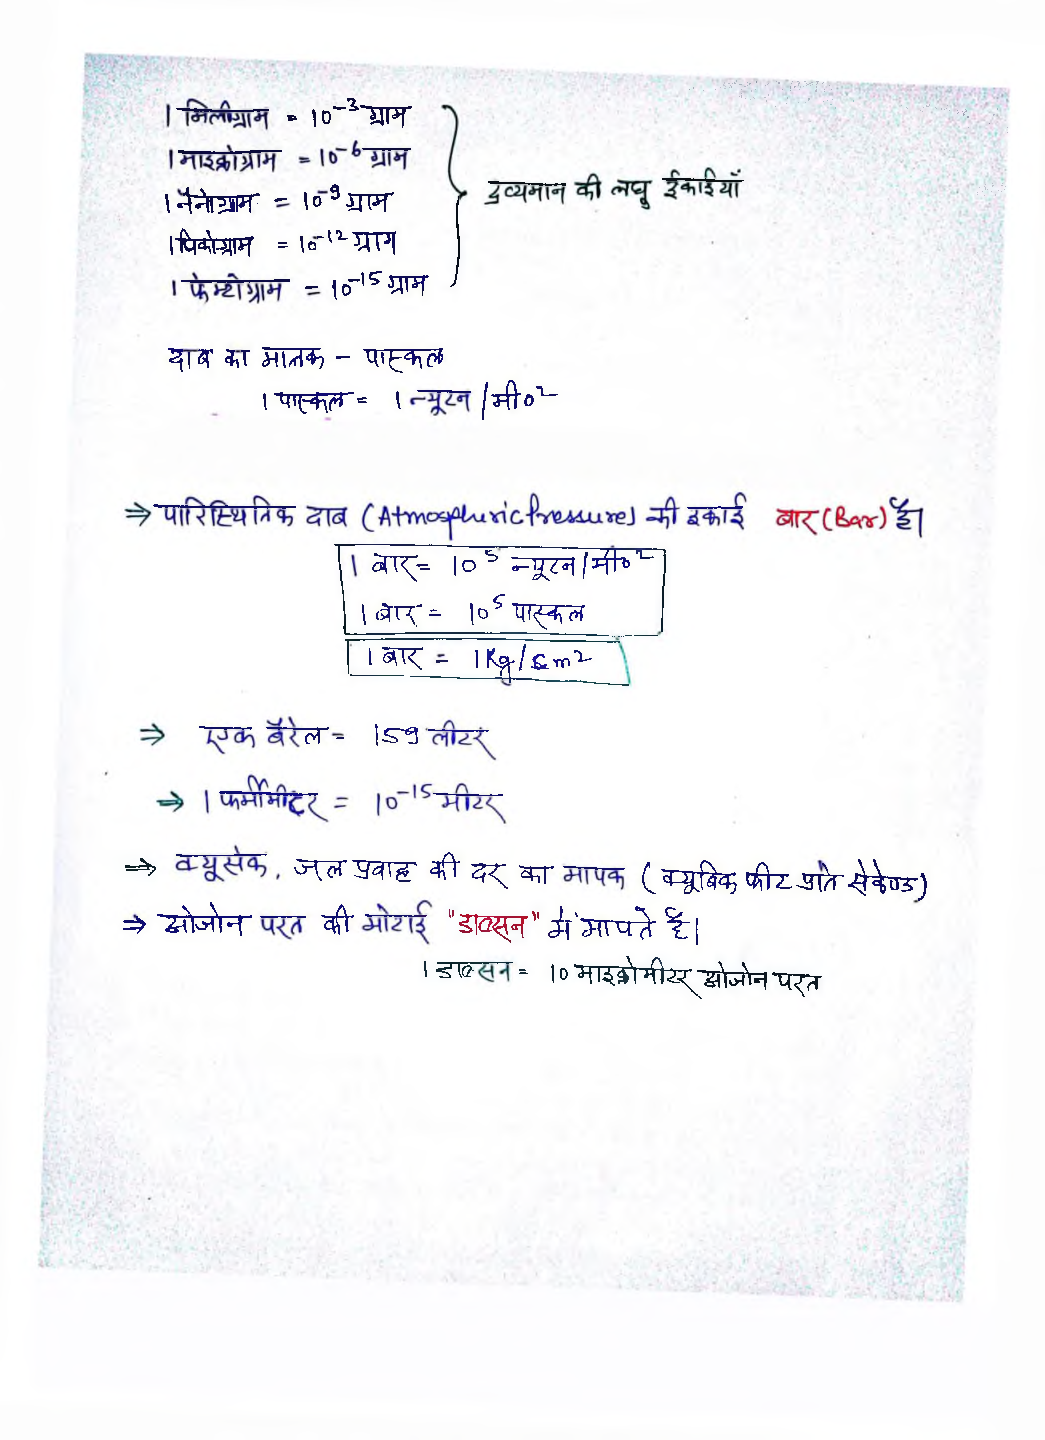 1 मिलीग्राम = 10⁻³ ग्राम
1 माइक्रोग्राम = 10⁻⁶ ग्राम
1 नैनोग्राम = 10⁻⁹ ग्राम
1 पिकोग्राम = 10⁻¹² ग्राम
1 फेम्टोग्राम = 10⁻¹⁵ ग्राम
द्रव्यमान की लघु ईकाईयाँ
दाब का मात्रक – पास्कल
1 पास्कल = 1 न्यूटन / मी०²
⇒ पारिस्थितिक दाब (Atmospheric Pressure) की इकाई बार (Bar) है।
1 बार = 10⁵ न्यूटन / मी०²
1 बार = 10⁵ पास्कल
1 बार = 1Kg/cm²
⇒ एक बैरेल = 159 लीटर
⇒ 1 फर्मीमीटर = 10⁻¹⁵ मीटर
⇒ क्यूसेक, जल प्रवाह की दर का मापक (क्यूबिक फीट प्रति सेकेण्ड)
⇒ ओजोन परत की मोटाई "डाब्सन" में मापते है।
1 डाब्सन = 10 माइक्रोमीटर ओजोन परत